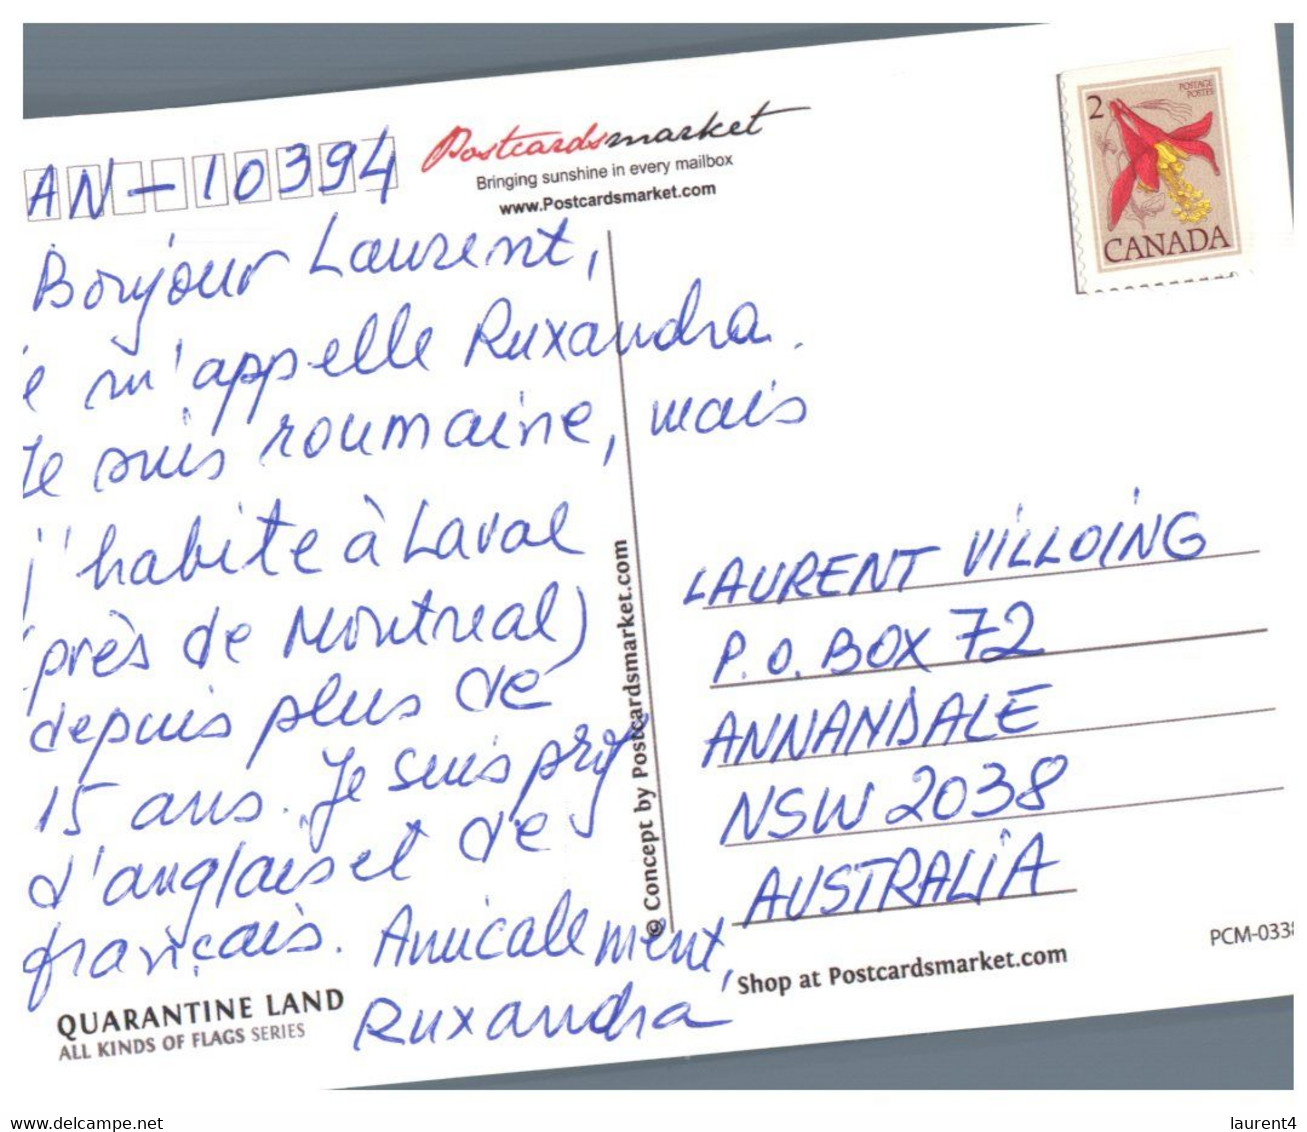 AN-10394
Postcardsmarket
Bringing sunshine in every mailbox
www.Postcardsmarket.com
2
POSTAGE
POSTES
CANADA
Bonjour Laurent,
e m'appelle Ruxandra.
Je suis roumaine, mais
j'habite à Laval
(près de Montreal)
depuis plus de
15 ans. Je suis prof
d'anglais et de
français. Amicalement,
Ruxandra
LAURENT VILLOING
P.O. BOX 72
ANNANDALE
NSW 2038
AUSTRALIA
© Concept by Postcardsmarket.com
QUARANTINE LAND
ALL KINDS OF FLAGS SERIES
Shop at Postcardsmarket.com
PCM-0338
www.delcampe.net
laurent4